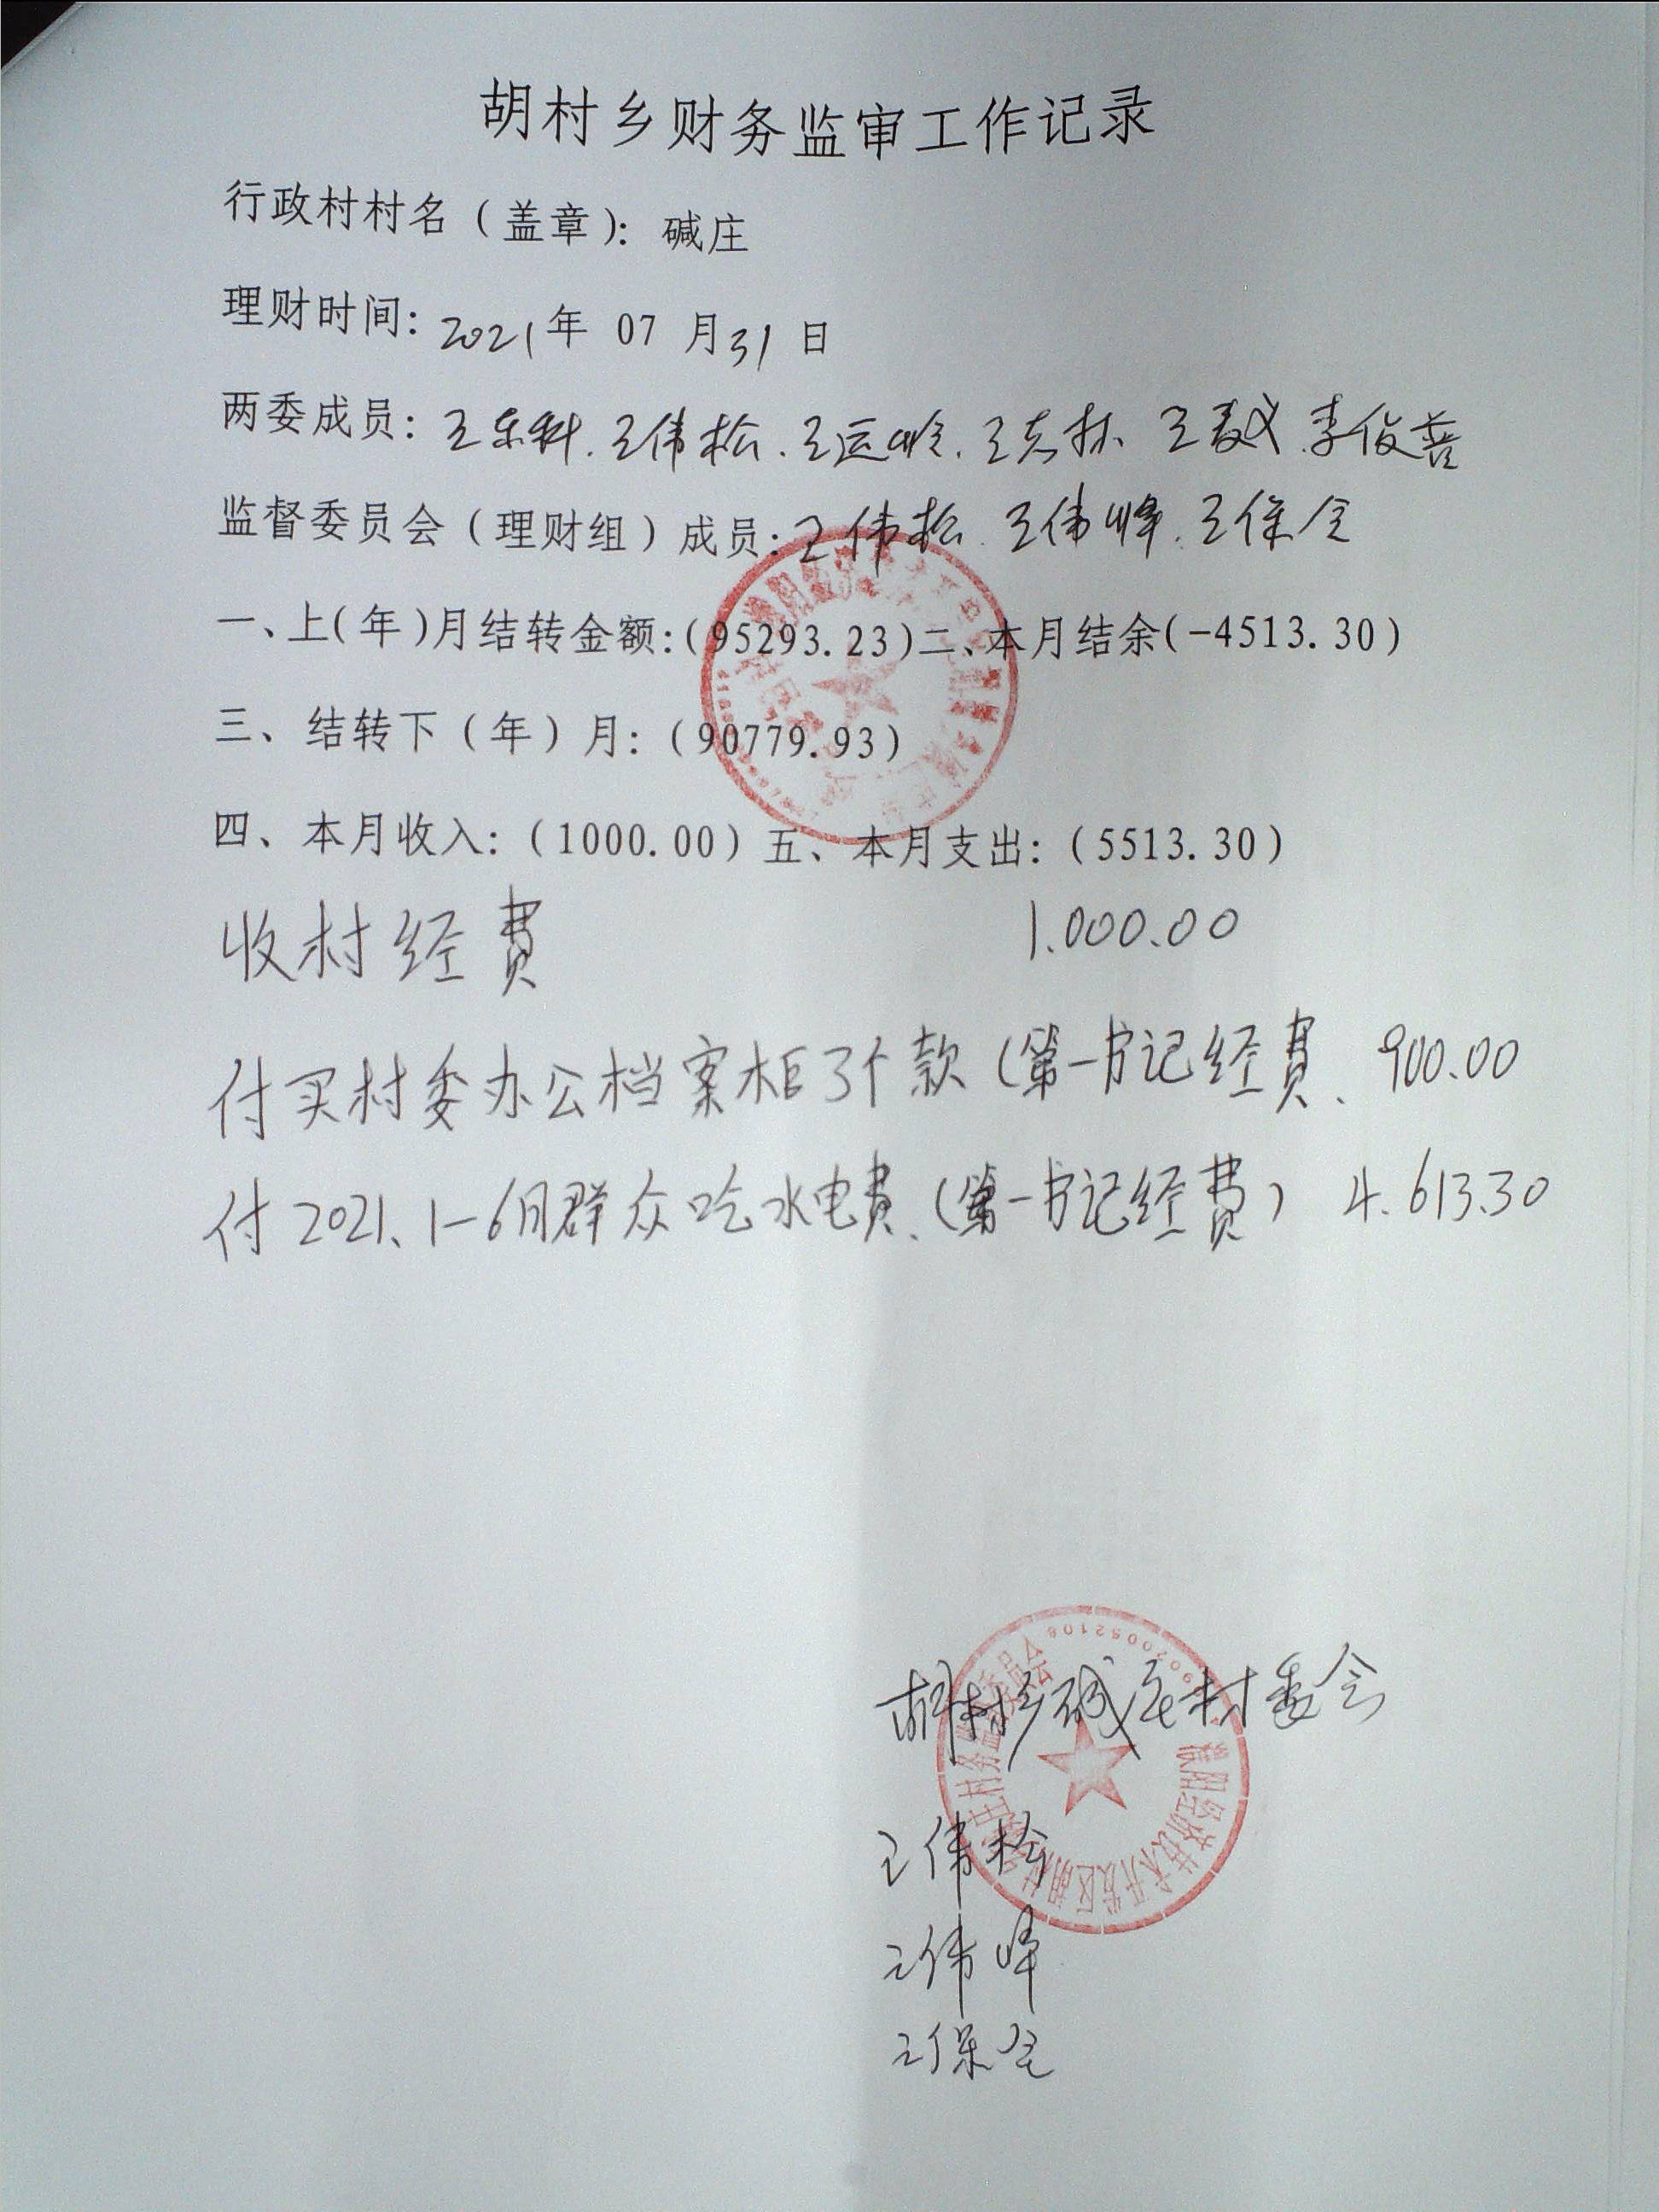 胡村乡财务监审工作记录
行政村村名（盖章）：碱庄
理财时间：2021年 07 月31 日
两委成员：王东科.王伟松.王运岭.王志林 王麦义.李俊善
监督委员会（理财组）成员：王伟松.王伟峰.王保全
一、上(年)月结转金额:(95293.23)二、本月结余(-4513.30)
三、结转下（年）月：（90779.93）
四、本月收入：（1000.00）五、本月支出：（5513.30）
收村经费 1.000.00
付买村委办公档案柜3个款（第一书记经费、 900.00
付2021、1-6月群众吃水电费、（第一书记经费） 4.613.30
胡村乡碱庄村委会
濮阳经济技术开发区胡村乡碱庄村务监督委员会
王伟松
王伟峰
王保全